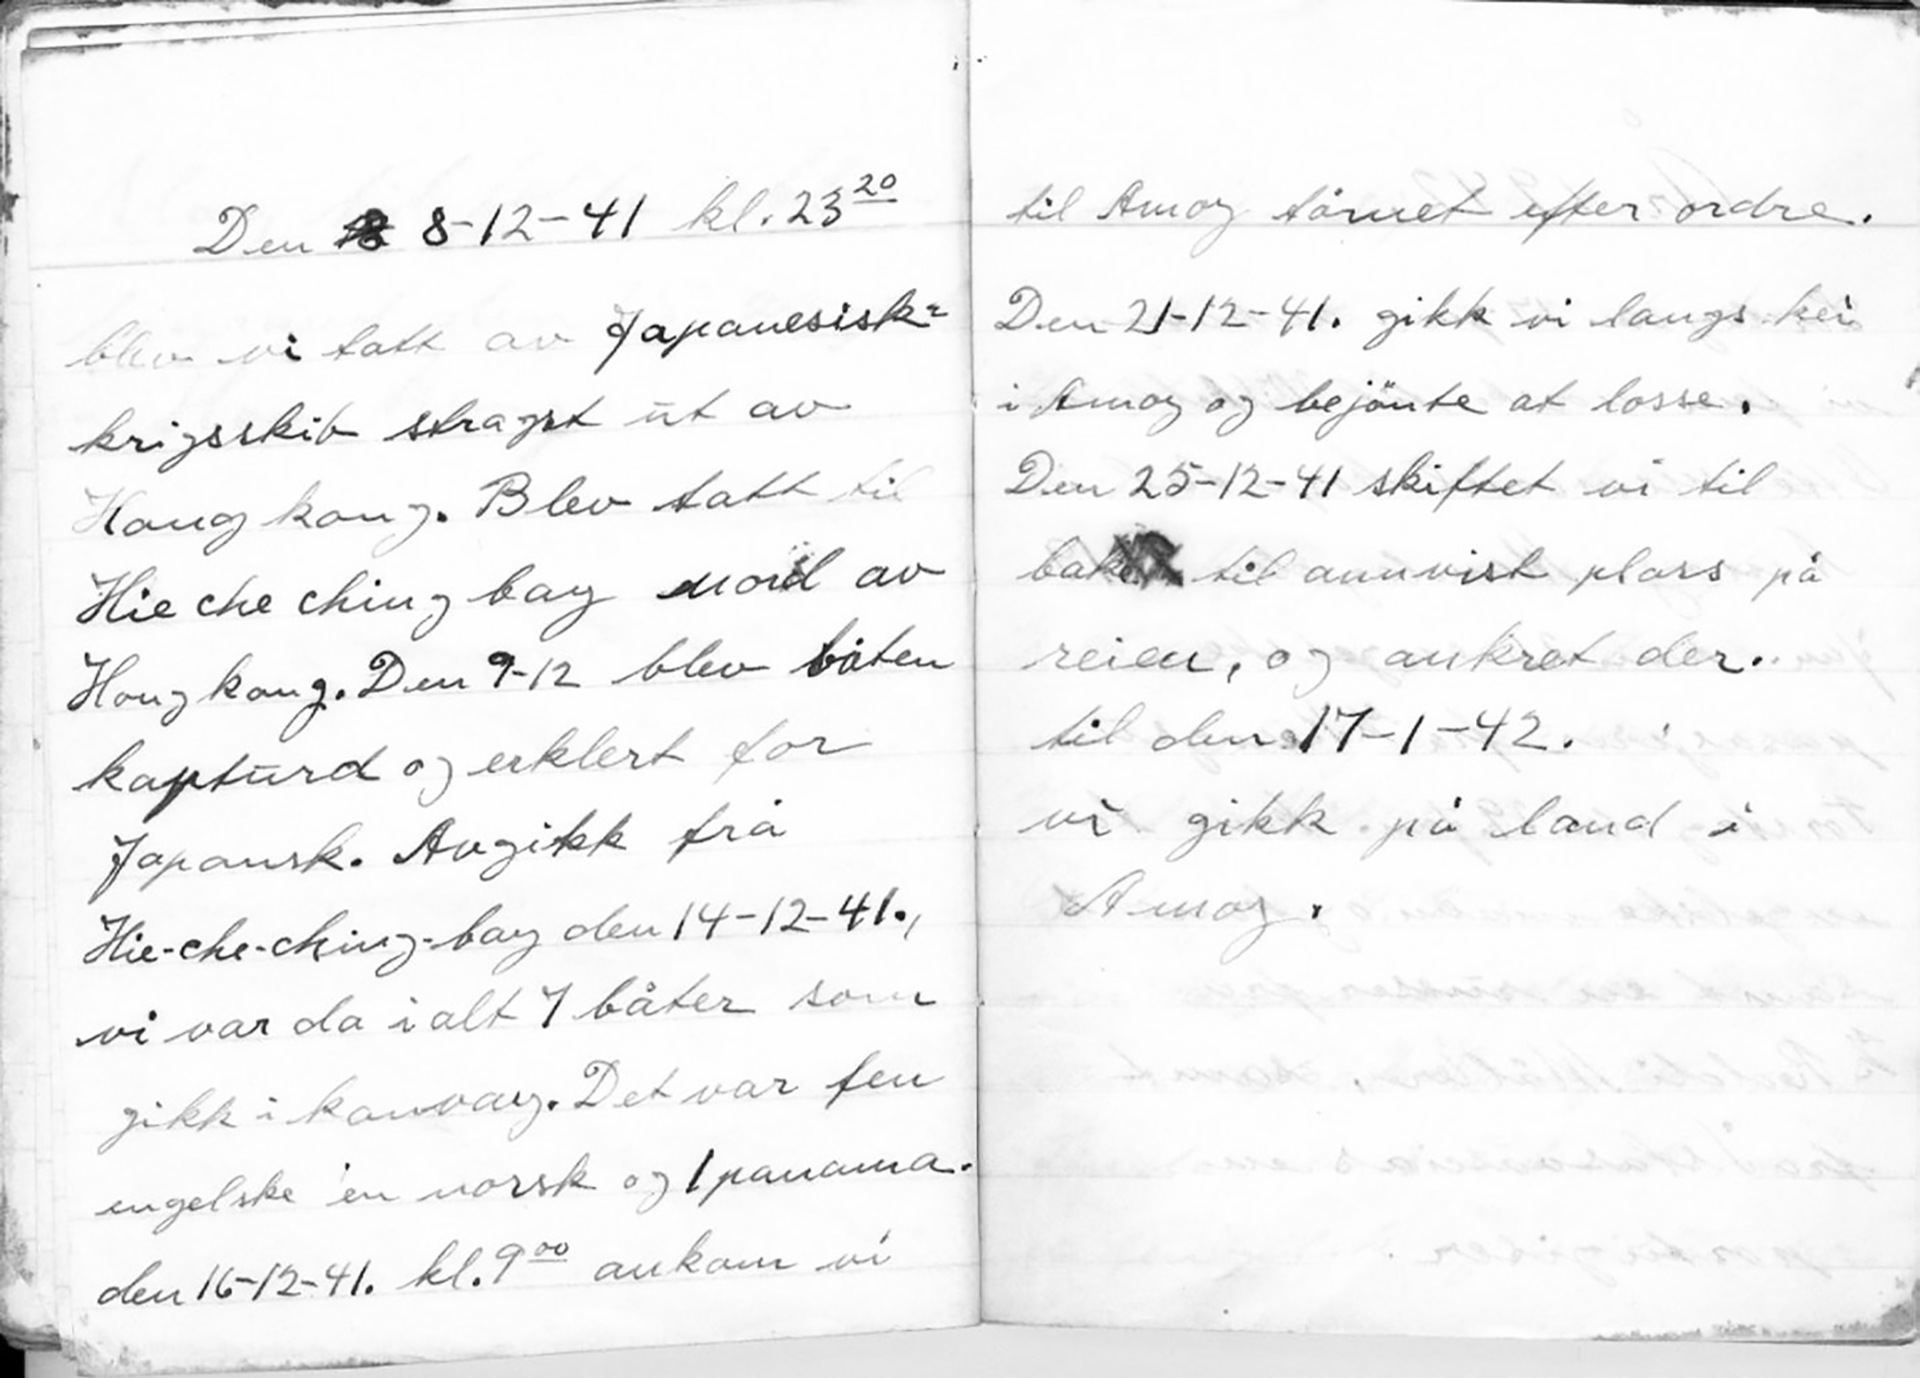 Den 8-12-41 kl. 23²⁰
blev vi tatt av Japanesisk=
krigsskib stragst ut av
Hong kong. Blev tatt til
Hie che ching bay nord av
Hong kong. Den 9-12 blev båten
kapturd og erklert for
Japansk. Avgikk frå
Hie-che-ching-bay den 14-12-41.,
vi var da i alt 7 båter som
gikk i konvoy. Det var fen
engelske en norsk og 1 panama.
den 16-12-41. kl. 9⁰⁰ ankom vi
til Amoy tårnet efter ordre.
Den 21-12-41. gikk vi langs kei
i Amoy og bejönte at losse.
Den 25-12-41 skiftet vi til
bake til annvist plass på
reien, og ankret der.
til den 17-1-42.
vi gikk på land i
Amoy.